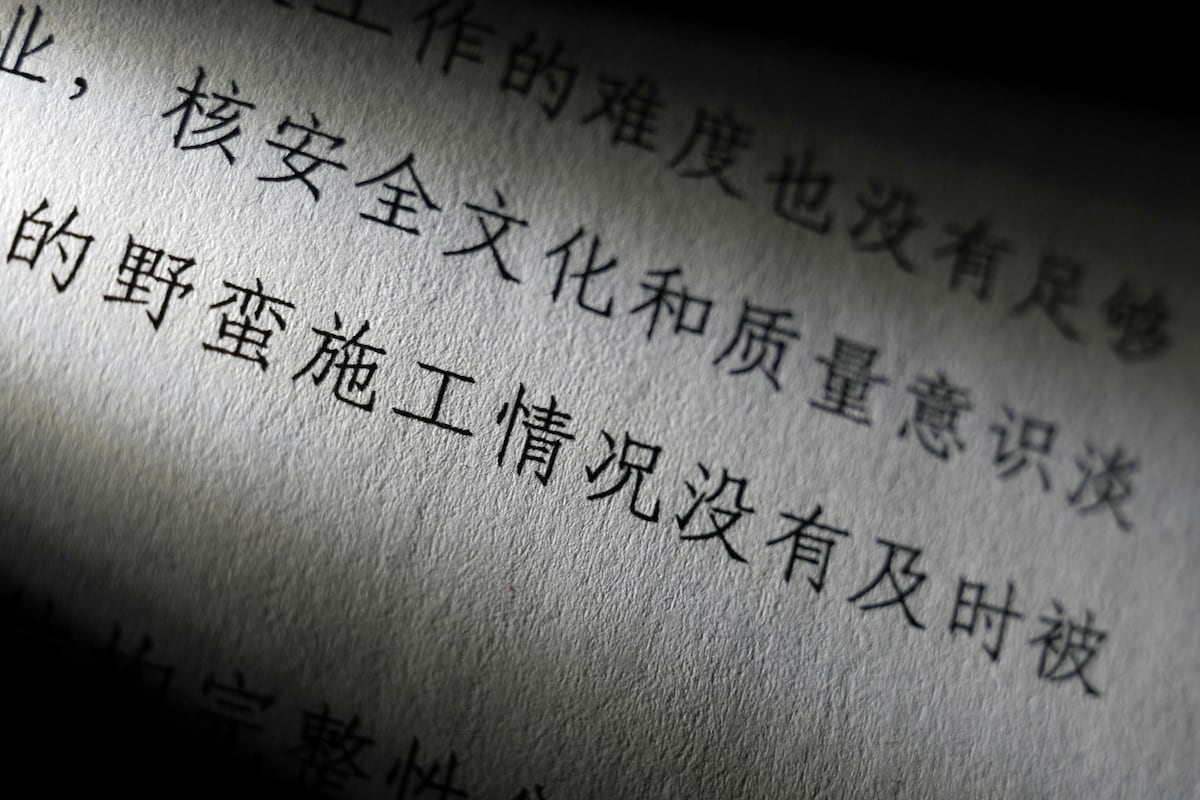 工作的难度也没有足够
业，核安全文化和质量意识淡
的野蛮施工情况没有及时被
构完整性